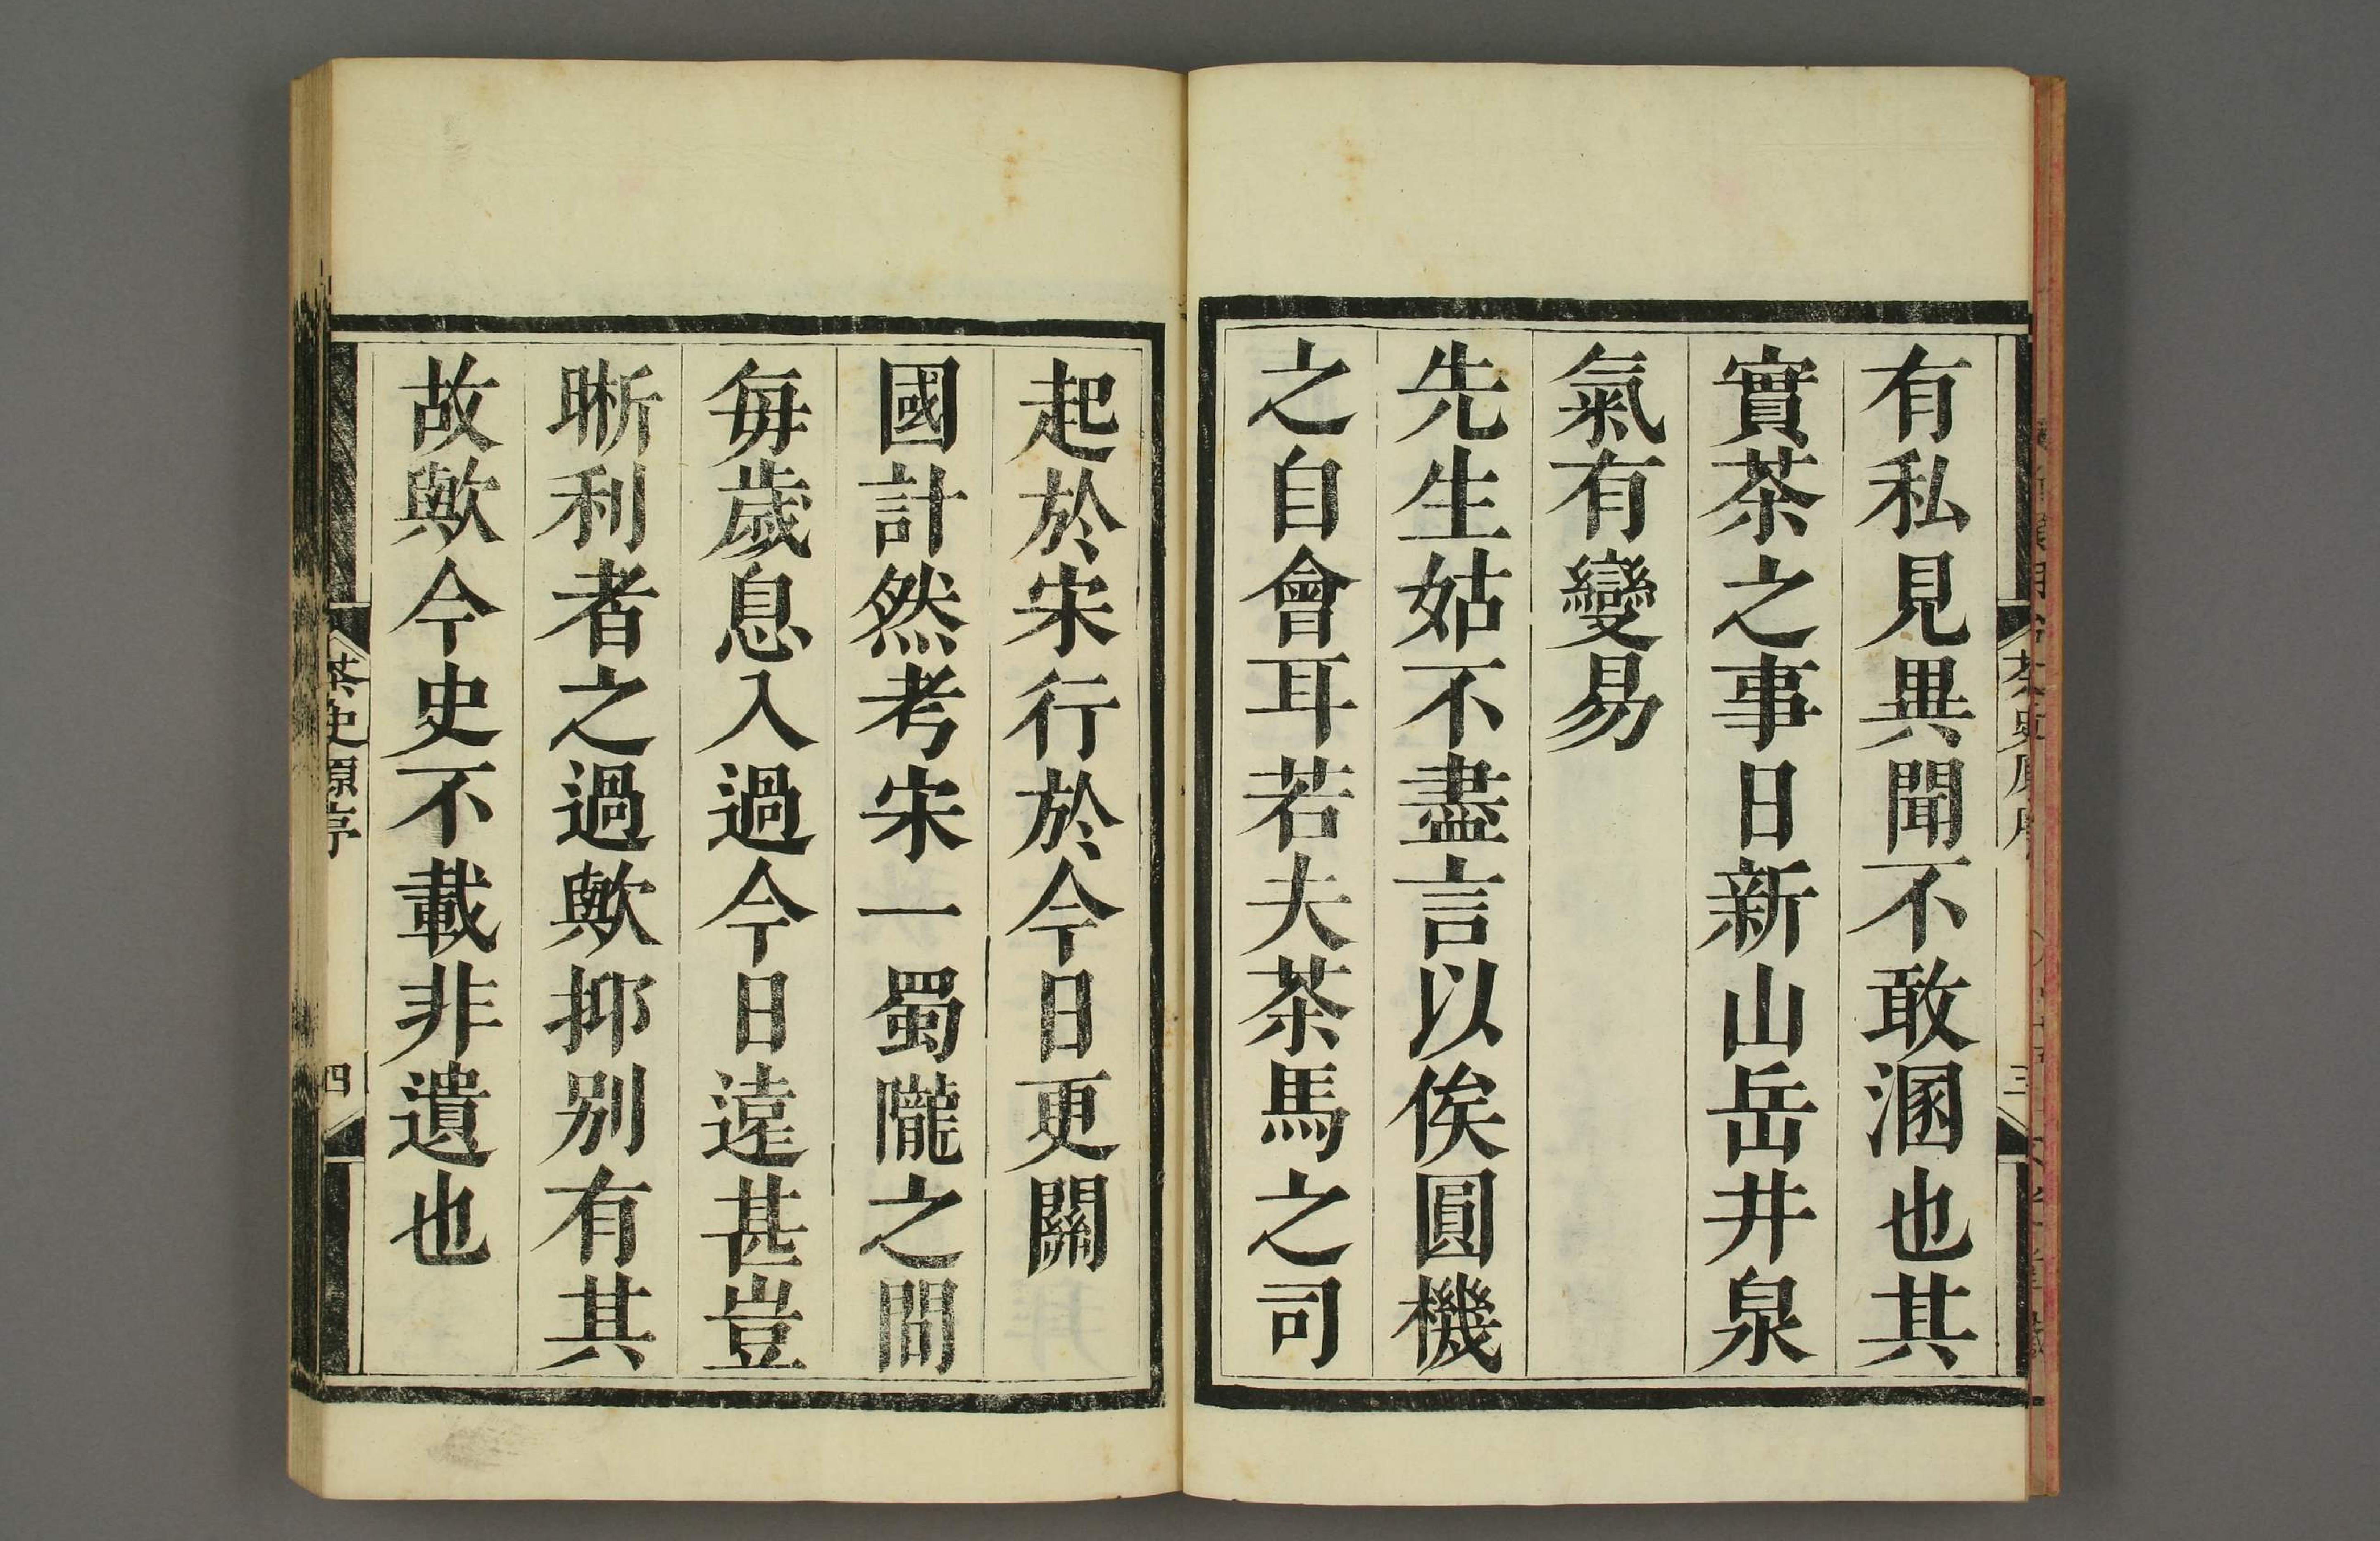 有私見異聞不敢溷也其
實茶之事日新山岳井泉
氣有變易
先生姑不盡言以俟圓機
之自會耳若夫茶馬之司
起於宋行於今日更關
國計然考宋一蜀隴之間
每歲息入過今日遠甚豈
晰利者之過歟抑別有其
故歟今史不載非遺也
茶史原序
四